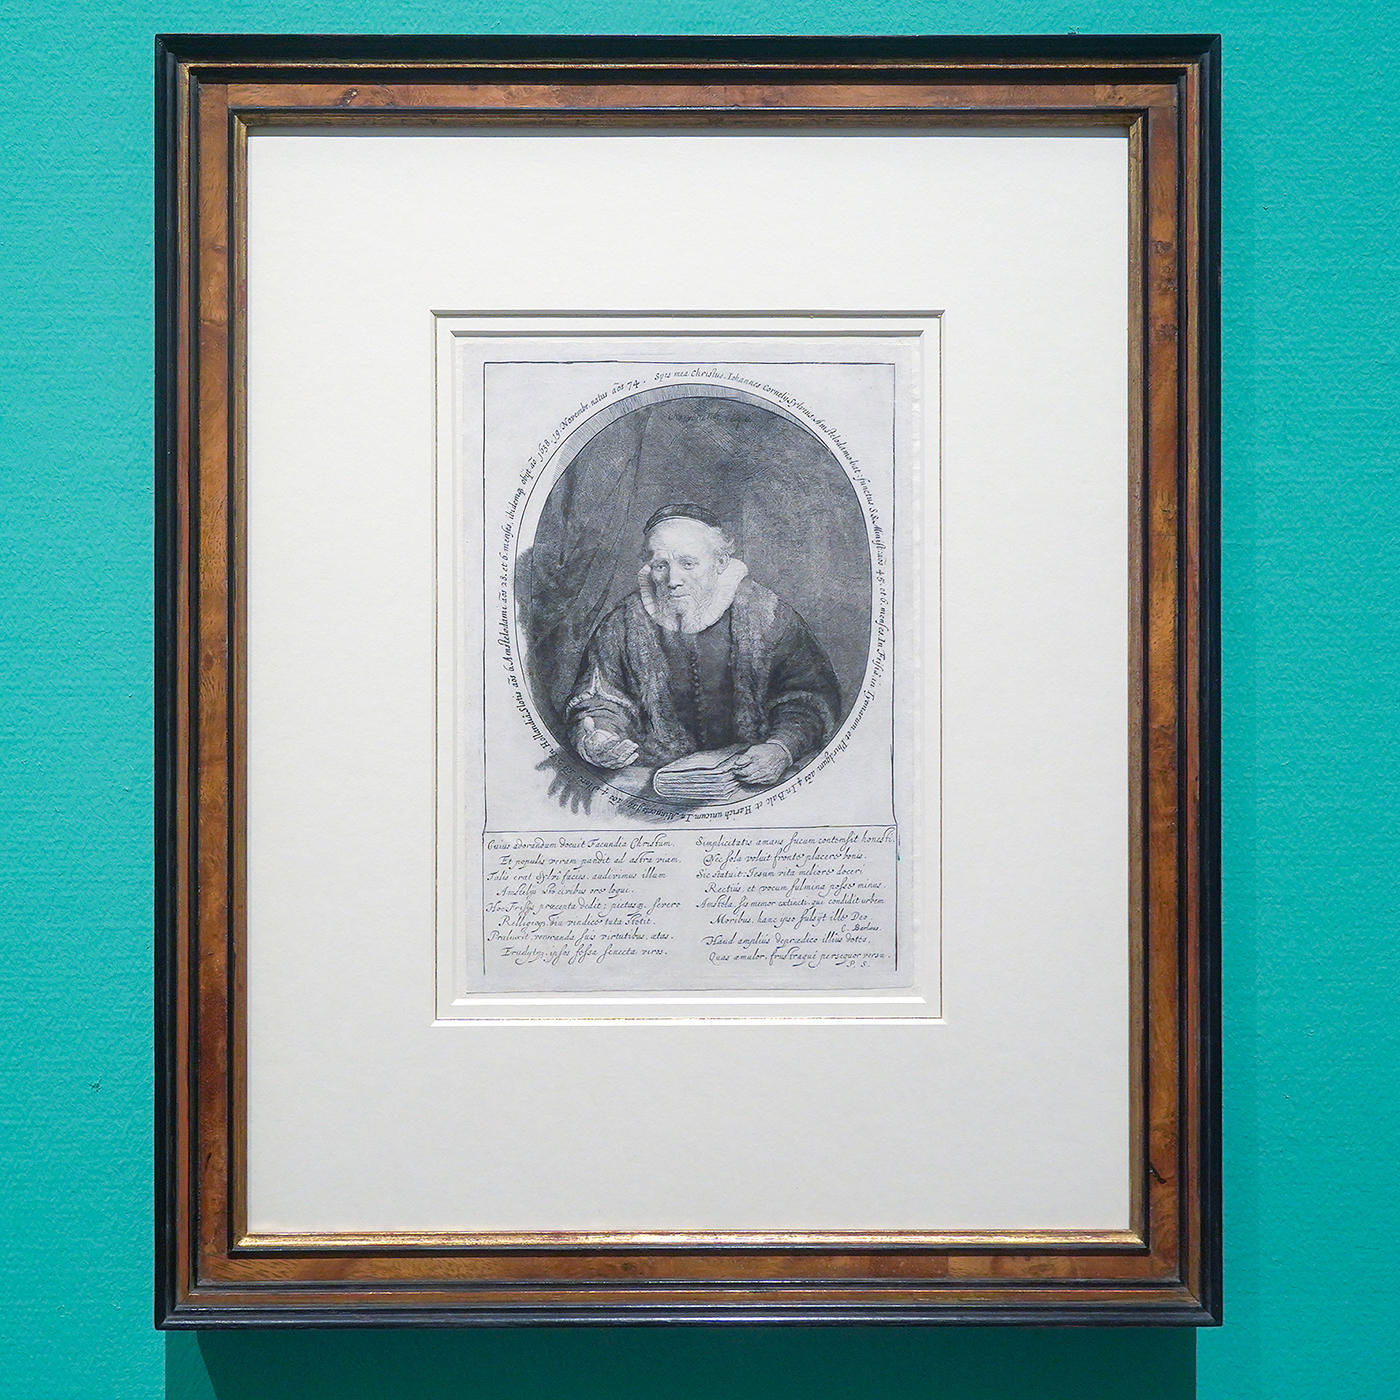 Spes mea Christus. Iohannes Cornely Sylvius, Amstelodamo bat: functus S.S. Minist: aōs 45. et 6. menses In Frisia in Tyemarum et Phirdgum aōs 4. In Balc et Harich unicum In Minnertsga aōs 4. Slotis aōs 6. Amstelodami aōs 28. et 6. menses, ibidemq, obijt aō 1638. 19 Novembr. natus aōs 74.
Cuius adorandum docuit Facundia Christum,
Et populis veram pandit ad astra viam,
Talis erat Sylvi facies. audivimus illum
Amstelijs hoc civibus ore loqui.
Hoc Frisijs præcepta dedit; pietasq, severo
Relligioq, diu vindice tuta stetit.
Præluxit, veneranda suis virtutibus, ætas.
Erudytq, ipsos fessa senecta viros.
Simplicitatis amans fucum contemsit honesti,
Nec sola voluit fronte placere bonis.
Sic statuit: Iesum vita meliore doceri
Rectius, et vocum fulmina posse minus.
Amstela, sis memor extincti, qui condidit urbem
Moribus, hanc ipso fulsijt ille Deo.
C. Barlæus.
Haud amplius deprædico illius dotes,
Quas æmulor, frustraque persequor versu.
P. S.